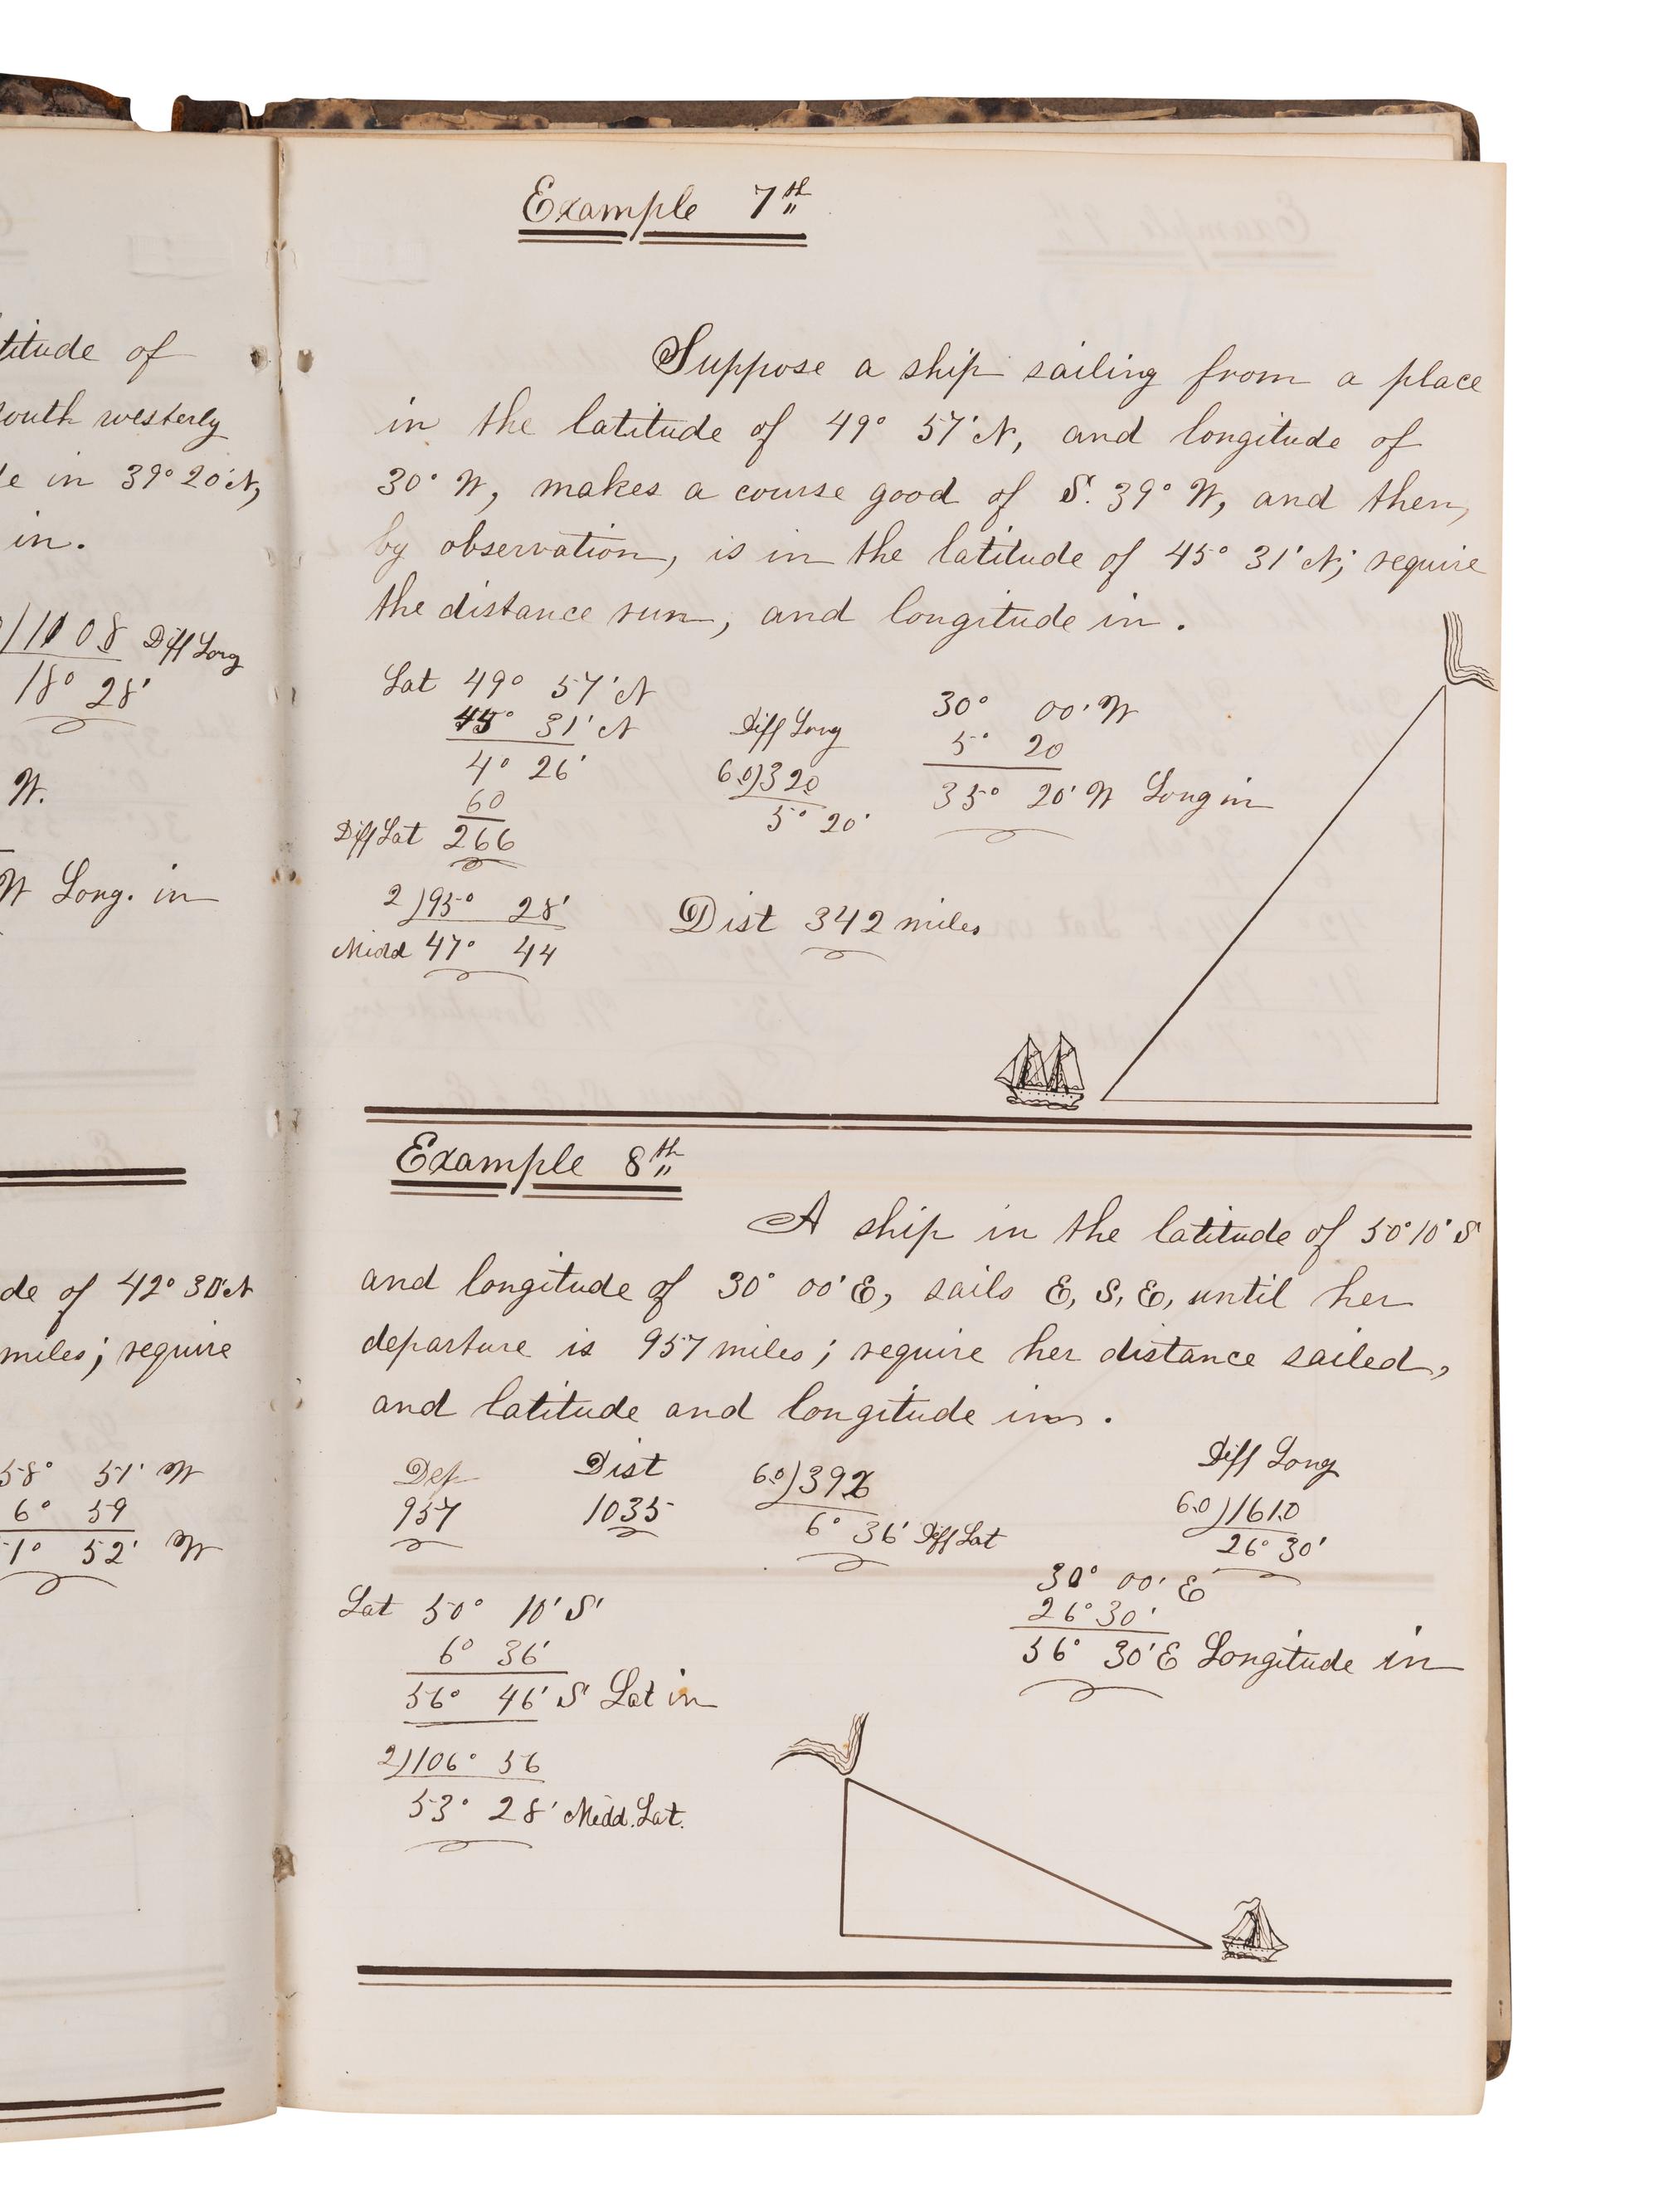 titude of
outh westerly
e in 39° 20' N,
in.
1108 Diff Long
18° 28'
W.
W Long. in
de of 42° 30' N
miles; require
58° 51' W
6° 59
1° 52' W
Example 7th
Suppose a ship sailing from a place
in the latitude of 49° 57' N, and longitude of
30° W, makes a course good of S. 39° W, and then,
by observation, is in the latitude of 45° 31' N; require
the distance run, and longitude in.
Lat 49° 57' N
45° 31' N
4° 26'
60
Diff Lat 266
2)95° 28'
Midd 47° 44
Diff Long
6.0)320
5° 20'
30° 00' W
5° 20
35° 20' W Long in
Dist 342 miles
Example 8th
A ship in the latitude of 50° 10' S
and longitude of 30° 00' E, sails E, S, E, until her
departure is 957 miles; require her distance sailed,
and latitude and longitude in.
Dep
957
Dist
1035
6.0)396
6° 36' Diff Lat
Diff Long
6.0)161.0
26° 30'
30° 00' E
26° 30'
56° 30' E Longitude in
Lat 50° 10' S
6° 36'
56° 46' S Lat in
2)106° 56
53° 28' Midd. Lat.